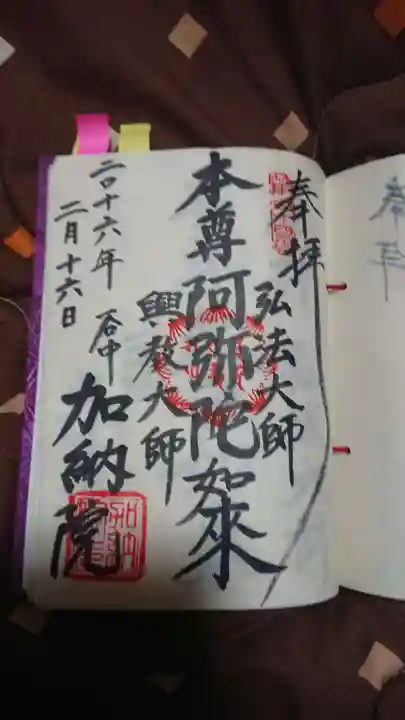 奉拝
弘法大師
本尊阿弥陀如来
興教大師
二〇十六年
二月十六日
谷中
加納院